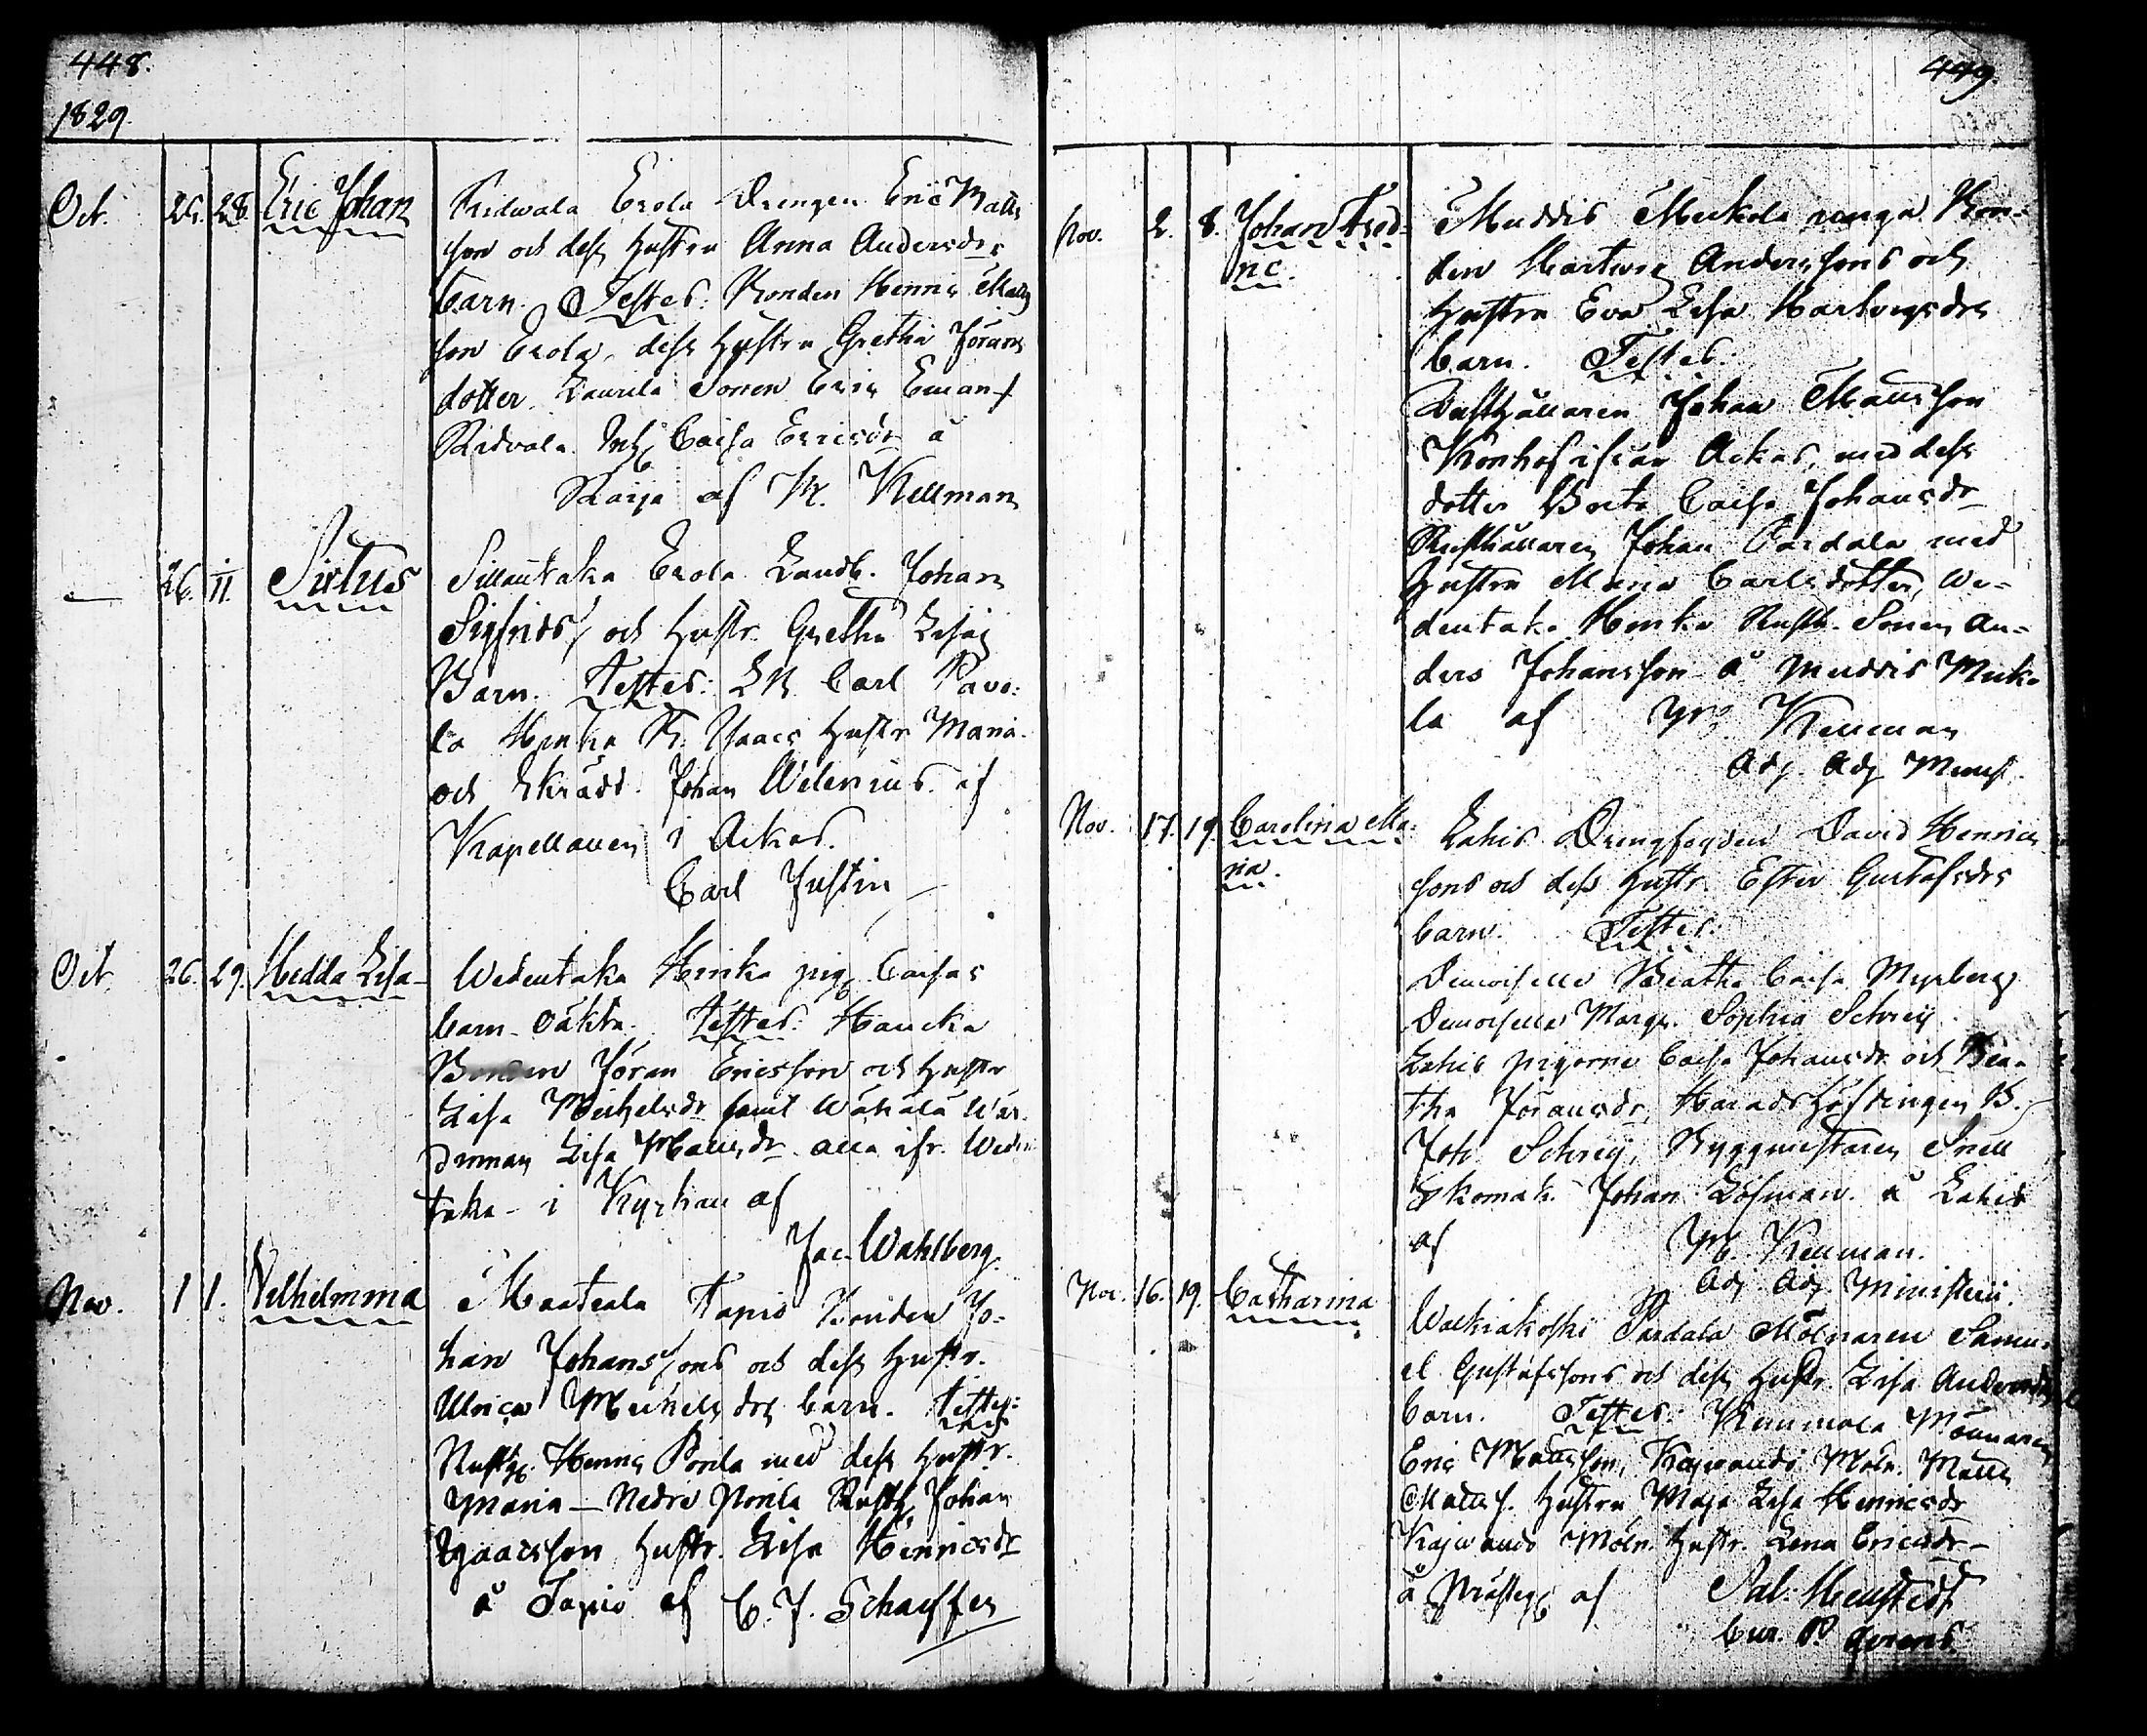 448.
1829.
Oct. 25. 28. Eric Johan
Ridvala Erola Drengen Eric Matts
son och dess hustru Anna Andersdrs
barn. Testes: Bonden Henric Matts
son Erola, dess hustru Gretha Jörans
dotter. Laurila Sonen Eric Emans
Ridvala. Inh. Caisa Ericsdr å
af M. Kellman
— 26. 11. Sixtus
Sillantaka Erola Landb. Johan
Sigfrids/ och hustr. Gretha Lisas
Barn. Testes: Carl Pavo:
la Henka Isaacs hustr Maria
och Skrädd. Johan Welenius. af
Kapellanen i Ackas.
Carl Justin
Oct. 26. 29. Hedda Lisa
Wedentaka Henka pig. Caisas
barn oäkta. Testes: Haucka
Bonden Jöran Ericsson och hustr
Lisa Michelsdr samt
Lisa Mattsdr alla ifr. Weden
taka i Kyrkan af
Jac. Wahlberg.
Nov. 1 1. Vilhelmina
Maateala Tapio Bonden Jo-
han Johanssons och dess hustr.
Ulrica Michelsdrs barn. Testes:
Rusth. Henric Porila med dess hustr.
Maria — Nedre Porila Rusth. Johan
Isaacsson hustr. Lisa Henricsdr
å Tapio af C. J. Schaeffer
449.
Nov. 2. 8. Johan Fred-
ric.
Muddis Meukola unga Bon-
den Hartwig Anderssons och
hustru Eva Lisa Hartvigsdrs
barn. Testes:
Rusthållaren Johan Mattsson
Ackas, med dess
dotter Caisa Johansdr
Rusthållaren Johan Pardala med
hustru Maria Carlsdotter, We-
dentaka Henka Rusth. Sonen An-
ders Johansson å Muddis Meuko
la af M. Kellman
Adj. Adj. Minist.
Nov. 17. 19. Carolina Ma-
ria.
Lahis Drengfogden David Henrics
sons och dess hustr. Ester Gustafsdrs
barn. Testes:
Demoiselle Beatha Caisa Myrberg
Demoiselle Margr. Sophia Schreij
Lahis pigorne Caisa Johansdr och Bea-
tha Jöransdr, Häradshöfdingen B.
Joh. Schreij, Byggmästaren Snell
Skomak. Johan Löfman å Lahis
af M. Kellman.
Adj. Adj. Ministerii.
Nov. 16. 19. Catharina
Walkiakoski Pardala Mölnaren Samu-
el Gustafssons och dess hustr. Lisa Andersdrs
barn. Testes:
Eric Mattsson, Möln. Matts
Matts. hustru Maja Lisa Henricsdr
Möln. hustr. Lena Ericsdr
å Prästeg. af Sal. Hellstedt
Cur. P. Gerens